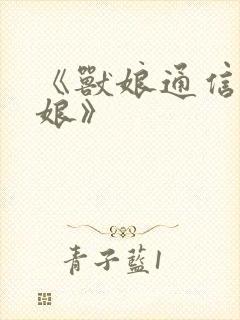 《獸娘通信
娘》
青子藍1